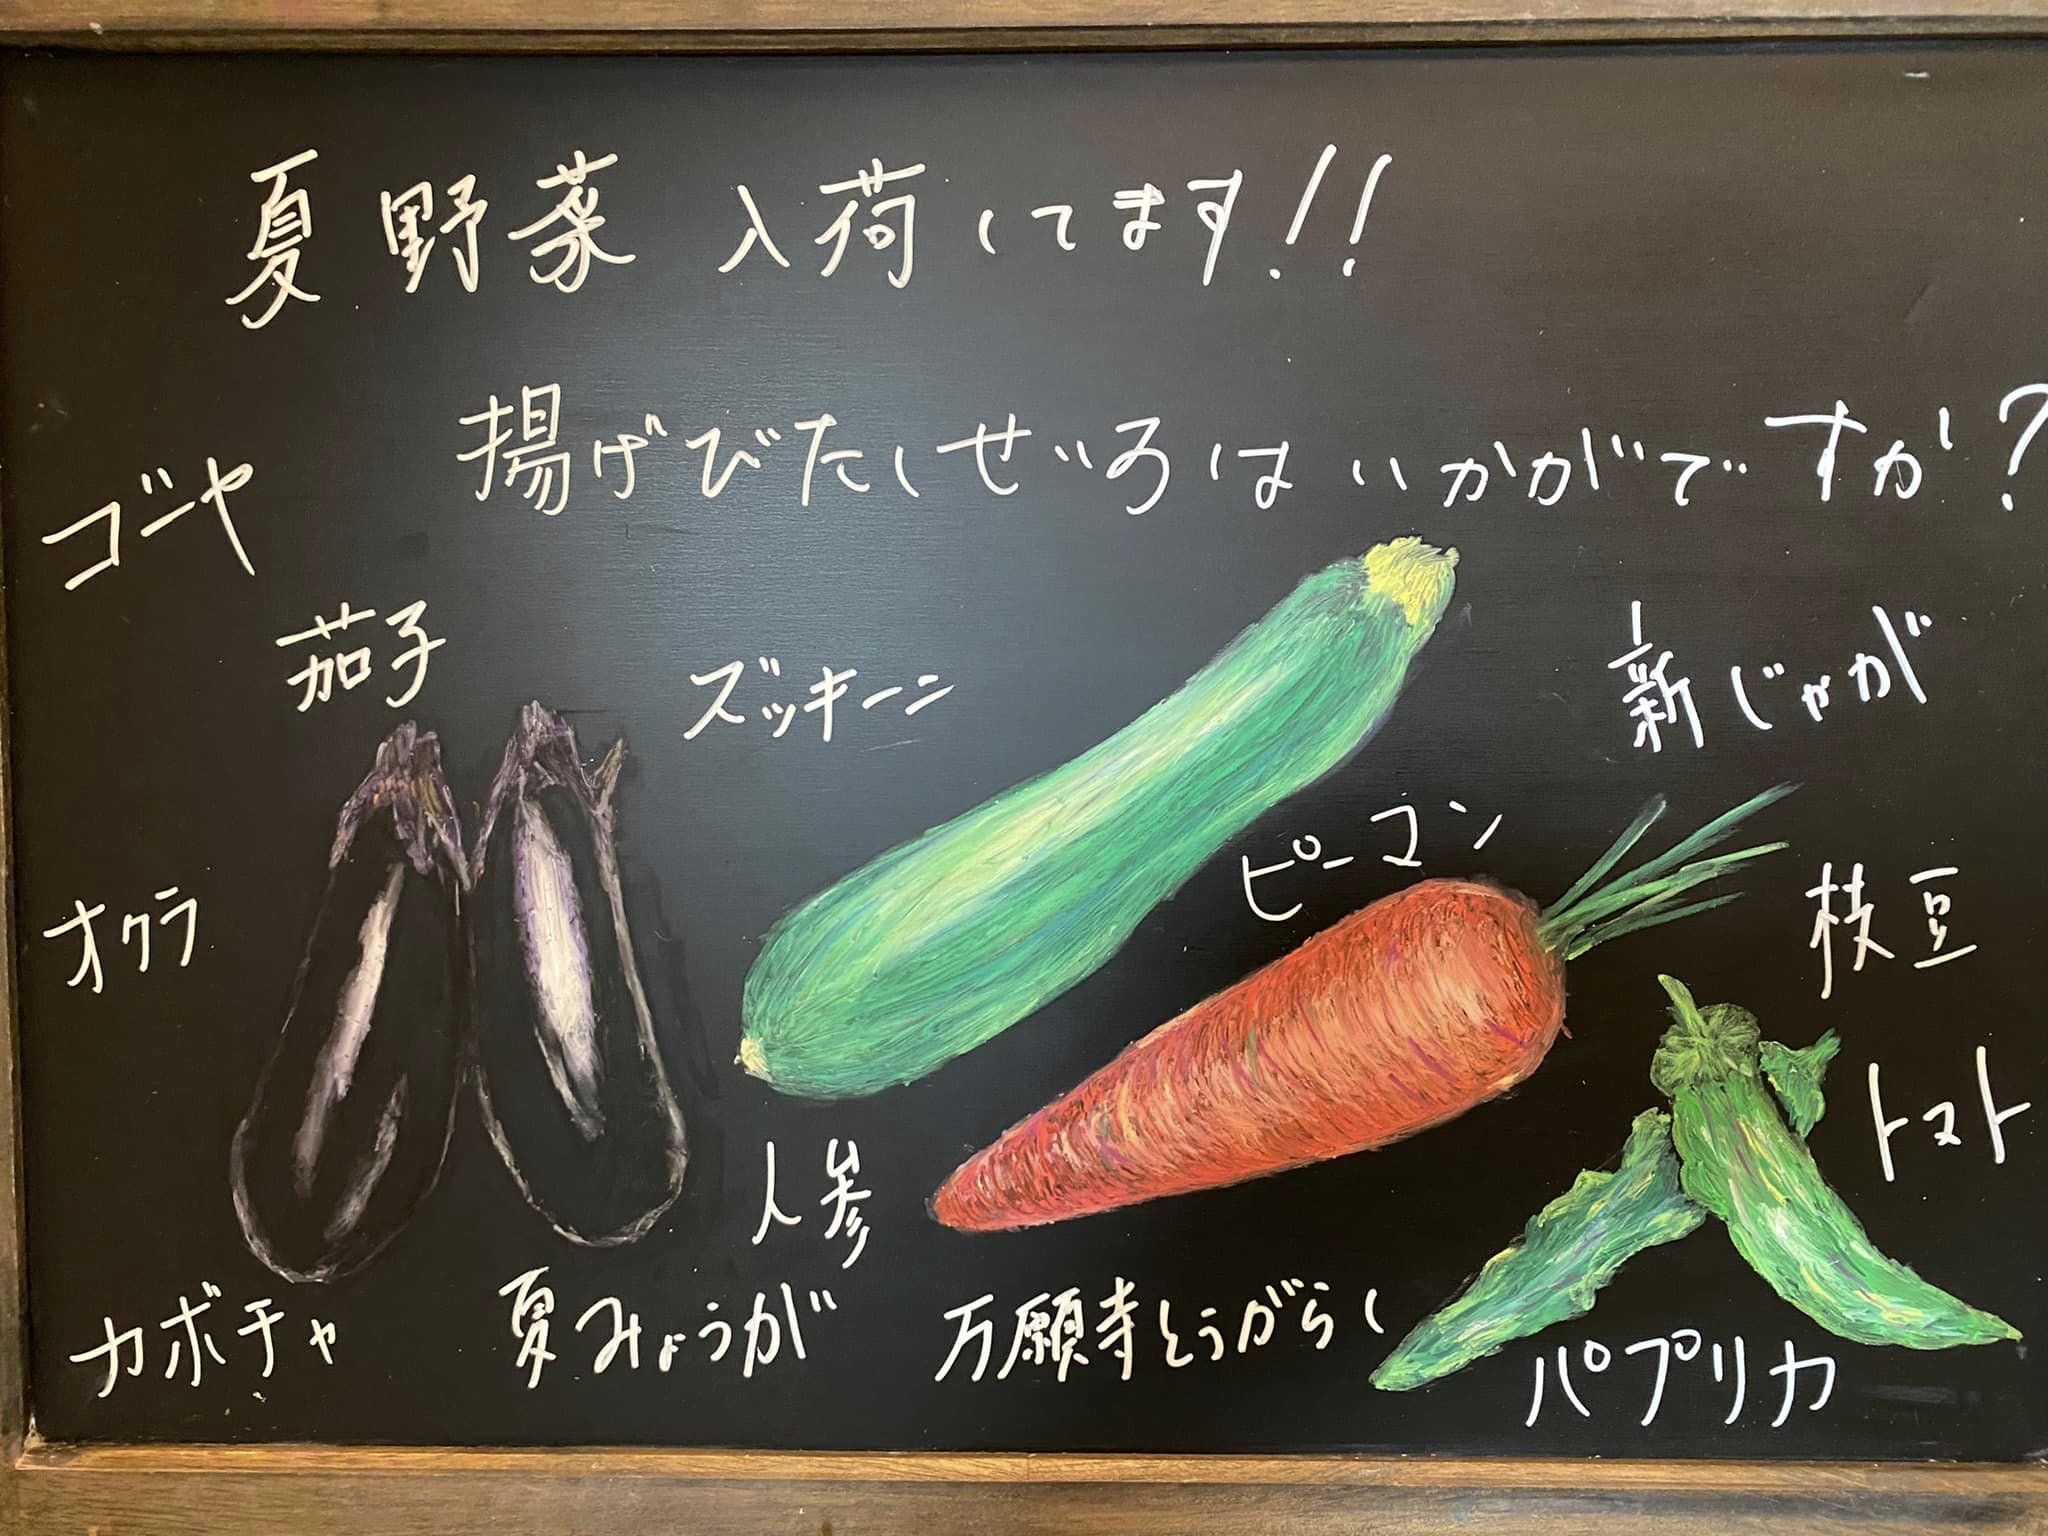 夏野菜入荷してます!!
揚げびたしせいろはいかがですか?
ゴーヤ
茄子
ズッキーニ
新じゃが
ピーマン
オクラ
枝豆
トマト
人参
カボチャ
夏みょうが
万願寺とうがらし
パプリカ